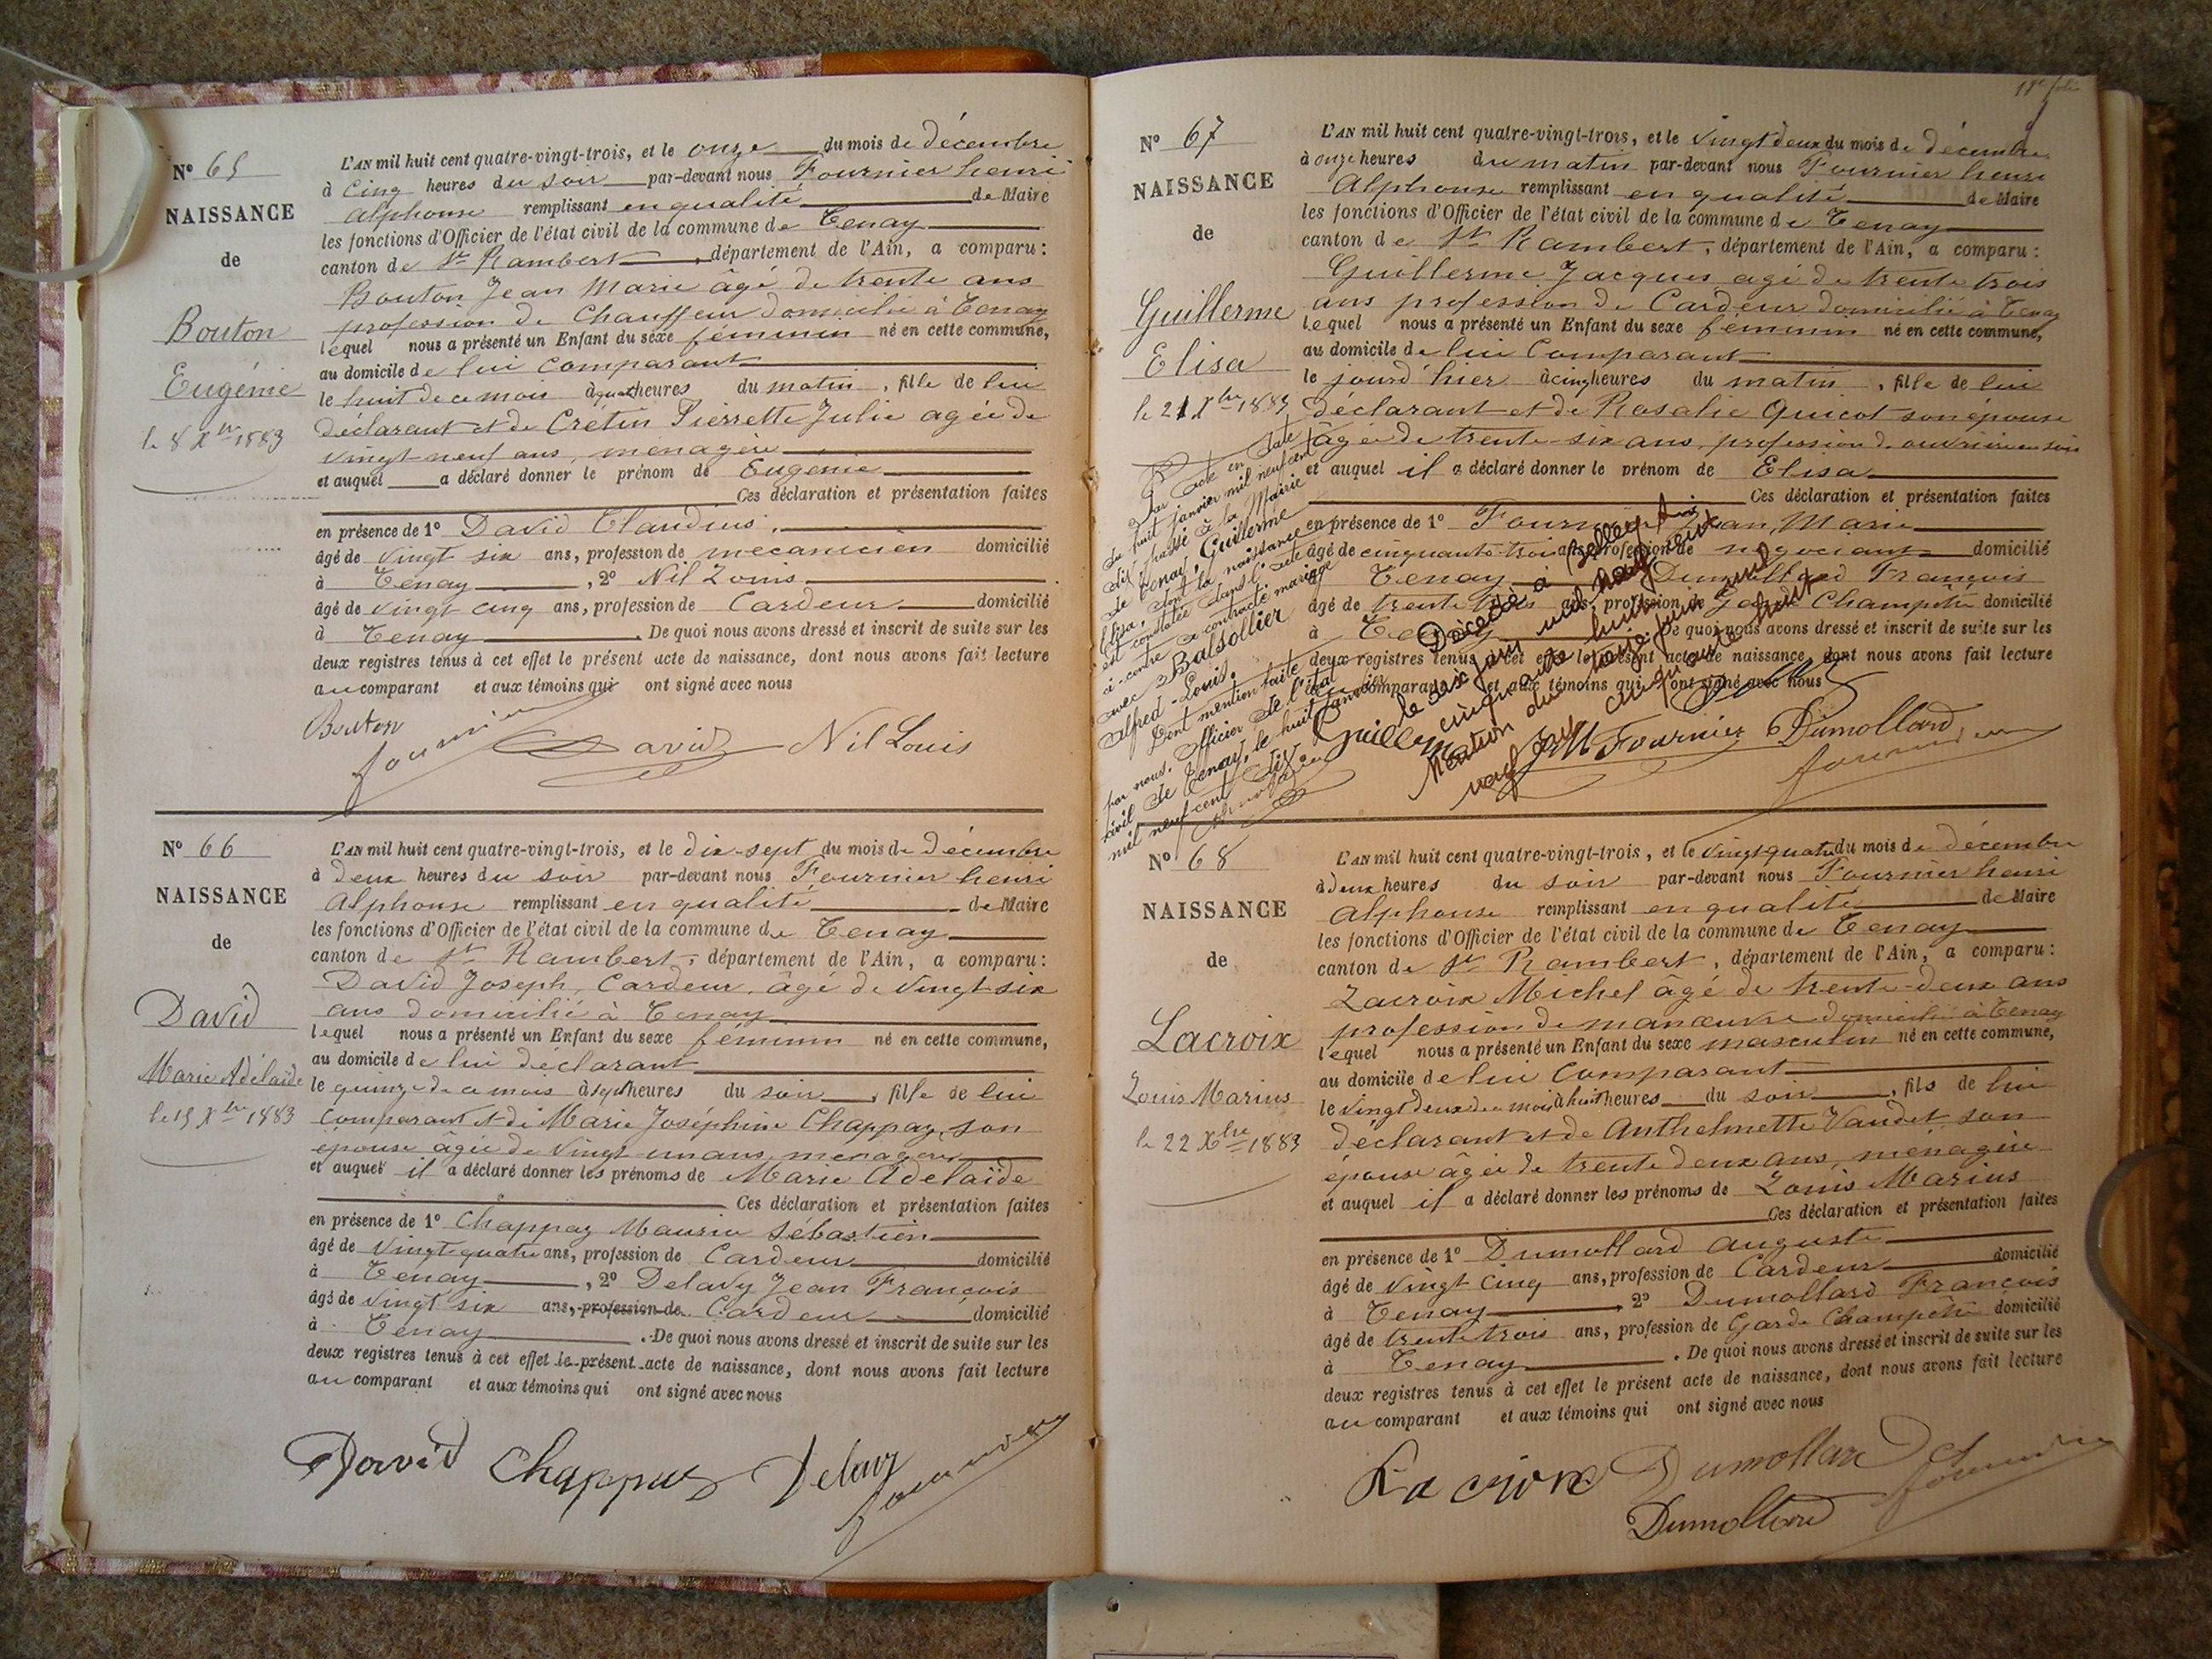 Nº 65
NAISSANCE
de
Bouton
Eugénie
le 8 Xbre 1883
L'AN mil huit cent quatre-vingt-trois, et le onze du mois de décembre
à cinq heures du soir par-devant nous Fournier henri
Alphonse remplissant en qualité de Maire
les fonctions d'Officier de l'état civil de la commune de Tenay
canton de St Rambert, département de l'Ain, a comparu :
Bouton Jean Marie âgé de trente ans
profession de Chauffeur domicilié à Tenay
lequel nous a présenté un Enfant du sexe féminin né en cette commune,
au domicile de lui Comparant
le huit de ce mois à quatre heures du matin, fille de lui
déclarant et de Crétin Pierrette Julie agée de
vingt-neuf ans, ménagère
et auquel a déclaré donner le prénom de Eugénie
Ces déclaration et présentation faites
en présence de 1º David Claudius.
âgé de vingt six ans, profession de mécanicien domicilié
à Tenay, 2º Nil Louis
âgé de vingt cinq ans, profession de Cardeur domicilié
à Tenay. De quoi nous avons dressé et inscrit de suite sur les
deux registres tenus à cet effet le présent acte de naissance, dont nous avons fait lecture
au comparant et aux témoins qui ont signé avec nous
Bouton
fournier David Nil Louis
Nº 66
NAISSANCE
de
David
Marie Adélaïde
le 15 Xbre 1883
L'AN mil huit cent quatre-vingt-trois, et le dix-sept du mois de décembre
à deux heures du soir par-devant nous Fournier henri
Alphonse remplissant en qualité de Maire
les fonctions d'Officier de l'état civil de la commune de Tenay
canton de St Rambert, département de l'Ain, a comparu :
David Joseph, Cardeur, âgé de vingt-six
ans domicilié à Tenay
lequel nous a présenté un Enfant du sexe féminin né en cette commune,
au domicile de lui déclarant
le quinze de ce mois à sept heures du soir, fille de lui
Comparant et de Marie Joséphine Chappaz, son
épouse âgée de vingt un ans, ménagère
et auquel il a déclaré donner les prénoms de Marie Adelaïde
Ces déclaration et présentation faites
en présence de 1º Chappaz Maurice Sébastien
âgé de vingt quatre ans, profession de Cardeur domicilié
à Tenay, 2º Delavy Jean François
âgé de vingt six ans, profession de Cardeur domicilié
à Tenay. De quoi nous avons dressé et inscrit de suite sur les
deux registres tenus à cet effet le présent acte de naissance, dont nous avons fait lecture
au comparant et aux témoins qui ont signé avec nous
David Chappaz Delavy
fournier
11e folio
Nº 67
NAISSANCE
de
Guillerme
Elisa
le 21 Xbre 1883
Par acte en date
du huit janvier mil neuf cent
dix, passé à la Mairie
de Tenay, Guillerme
Elisa, dont la naissance
est constatée dans l'acte
ci-contre a contracté mariage
avec Balsollier
Alfred-Louis.
Dont mention faite
par nous, officier de l'état
civil de Tenay, le huit janvier
mil neuf cent dix
L'AN mil huit cent quatre-vingt-trois, et le vingt deux du mois de décembre
à onze heures du matin par-devant nous Fournier henri
Alphonse remplissant en qualité de Maire
les fonctions d'Officier de l'état civil de la commune de Tenay
canton de St Rambert, département de l'Ain, a comparu :
Guillerme Jacques agé de trente trois
ans profession de Cardeur domicilié à Tenay
lequel nous a présenté un Enfant du sexe féminin né en cette commune,
au domicile de lui Comparant
le jourd'hier à cinq heures du matin, fille de lui
déclarant et de Rosalie Quicot son épouse
âgée de trente-six ans, profession d'ouvrière en soie
et auquel il a déclaré donner le prénom de Elisa
Ces déclaration et présentation faites
en présence de 1º Fournier Jean Marie
âgé de cinquante trois ans, profession de négociant domicilié
Tenay Dumollard François
âgé de trente trois ans, profession de Garde Champêtre domicilié
à Tenay De quoi nous avons dressé et inscrit de suite sur les
deux registres tenus à cet effet le présent acte de naissance, dont nous avons fait lecture
comparant et aux témoins qui ont signé avec nous
Décédée à Belley
le six juin mil neuf cent
cinquante huit
Mention du seize juin mil
neuf cent cinquante huit
Guillerme JM Fournier Dumollard
fournier
Nº 68
NAISSANCE
de
Lacroix
Louis Marius
le 22 Xbre 1883
L'AN mil huit cent quatre-vingt-trois, et le vingt quatre du mois de décembre
à deux heures du soir par-devant nous Fournier henri
Alphonse remplissant en qualité de Maire
les fonctions d'Officier de l'état civil de la commune de Tenay
canton de St Rambert, département de l'Ain, a comparu :
Lacroix Michel âgé de trente-deux ans
profession de manœuvre domicilié à Tenay
lequel nous a présenté un Enfant du sexe masculin né en cette commune,
au domicile de lui Comparant
le vingt deux de ce mois à huit heures du soir, fils de lui
déclarant et de Anthelmette Vaudet son
épouse âgée de trente deux ans, ménagère
et auquel il a déclaré donner les prénoms de Louis Marius
Ces déclaration et présentation faites
en présence de 1º Dumollard auguste
âgé de vingt cinq ans, profession de Cardeur domicilié
à Tenay, 2º Dumollard François
âgé de trente trois ans, profession de Garde Champêtre domicilié
à Tenay. De quoi nous avons dressé et inscrit de suite sur les
deux registres tenus à cet effet le présent acte de naissance, dont nous avons fait lecture
au comparant et aux témoins qui ont signé avec nous
Lacroix Dumollard fournier
Dumollard